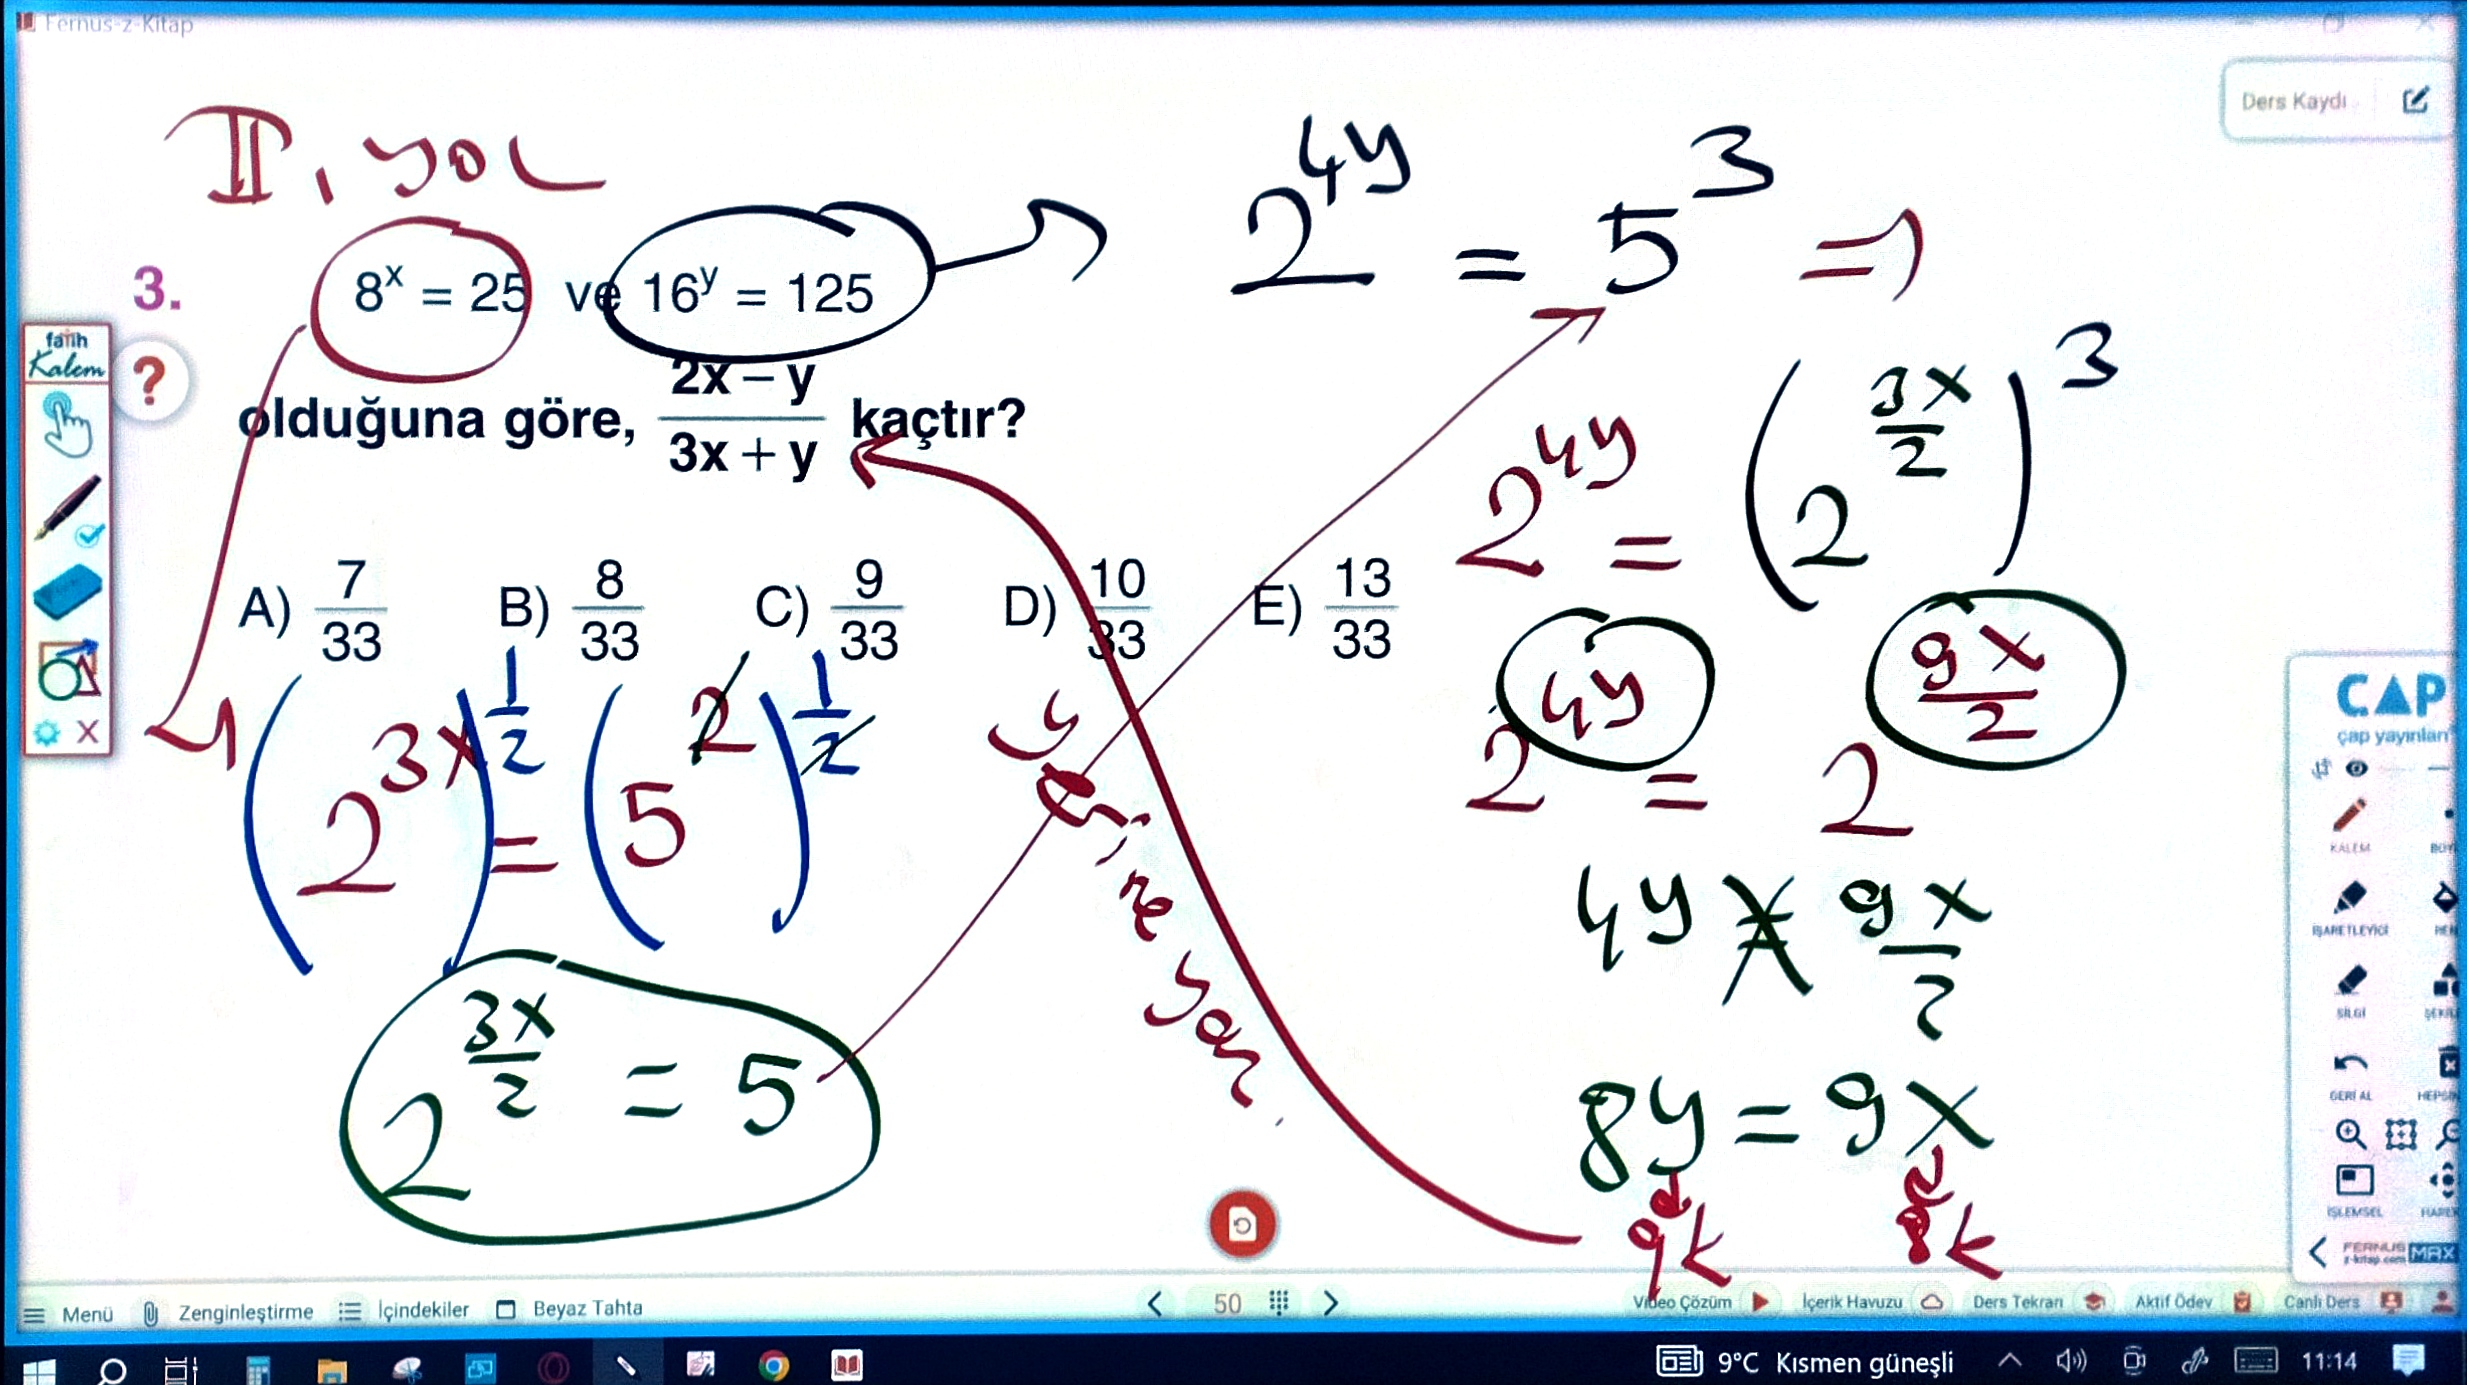 Fernus-z-Kitap
Ders Kaydı
II, yol
3.
8^x = 25 ve 16^y = 125
olduğuna göre, (2x – y)/(3x + y) kaçtır?
A) 7/33 B) 8/33 C) 9/33 D) 10/33 E) 13/33
fatih
Kalem
?
(2^(3x))^(1/2) = (5^2)^(1/2)
2^(3x/2) = 5
yerine yaz
2^(4y) = 5^3 =>
2^(4y) = (2^(3x/2))^3
2^(4y) = 2^(9x/2)
4y = 9x/2
8y = 9x
9k 8k
ÇAP
çap yayınları
KALEM
İŞARETLEYİCİ
SİLGİ
GERİ AL
İŞLEMSEL
FERNUS
z-kitap.com MAX
Menü Zenginleştirme İçindekiler Beyaz Tahta 50 Video Çözüm İçerik Havuzu Ders Tekrarı Aktif Ödev Canlı Ders
9°C Kısmen güneşli 11:14